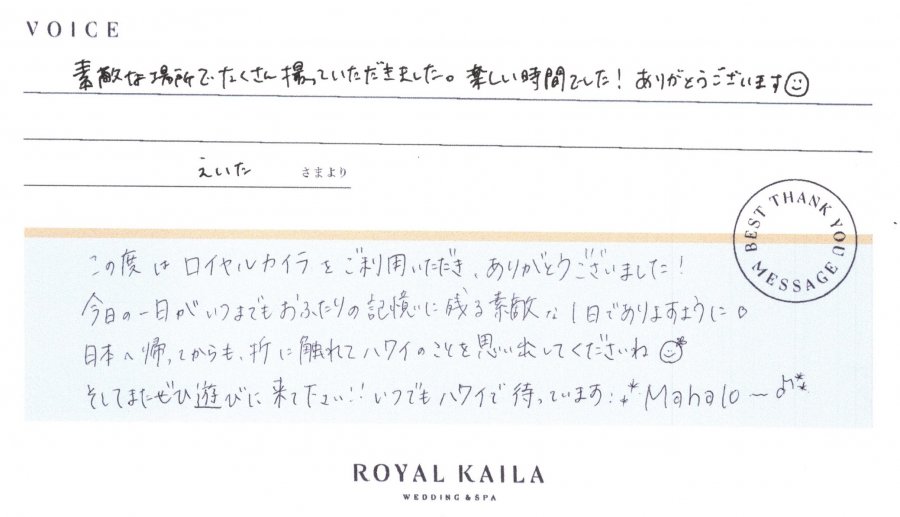 VOICE
素敵な場所でたくさん撮っていただきました。楽しい時間でした！ありがとうございます
えいた さまより
BEST THANK YOU MESSAGE
この度はロイヤルカイラをご利用いただき、ありがとうございました！
今日の一日がいつまでもおふたりの記憶に残る素敵な1日でありますように。
日本へ帰ってからも、折に触れてハワイのことを思い出してくださいね
そしてまたぜひ遊びに来て下さい!! いつでもハワイで待っています: Mahalo～♪
ROYAL KAILA
WEDDING & SPA